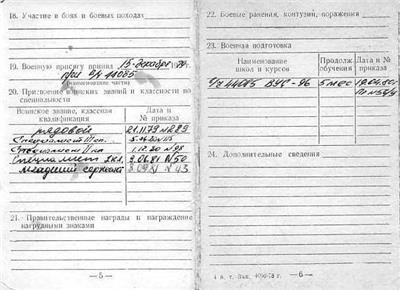 18. Участие в боях и боевых походах
19. Военную присягу принял 15 декабря 1979г.
при в/ч 44085
20. Присвоение воинских званий и классности по
специальности
Воинское звание, классная
квалификация
Дата и
№ приказа
рядовой 21.11.79 №289
Специалист
Специалист
Специалист 3.06.81 №50
младший сержант №43
21. Правительственные награды и награждение
нагрудными знаками
— 5 —
22. Боевые ранения, контузии, поражения
23. Военная подготовка
Наименование
школ и курсов
Продолж.
обучения
Дата и №
приказа
в/ч 44085 ВУС - 96 5 мес
24. Дополнительные сведения
— 6 —